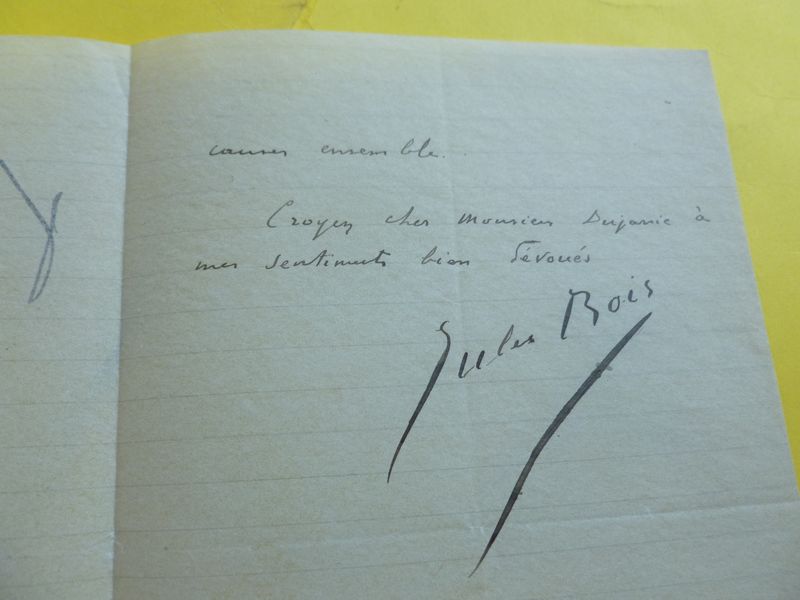 causer ensemble.
Croyez cher Monsieur Dujanie à
mes sentiments bien dévoués
Jules Bois